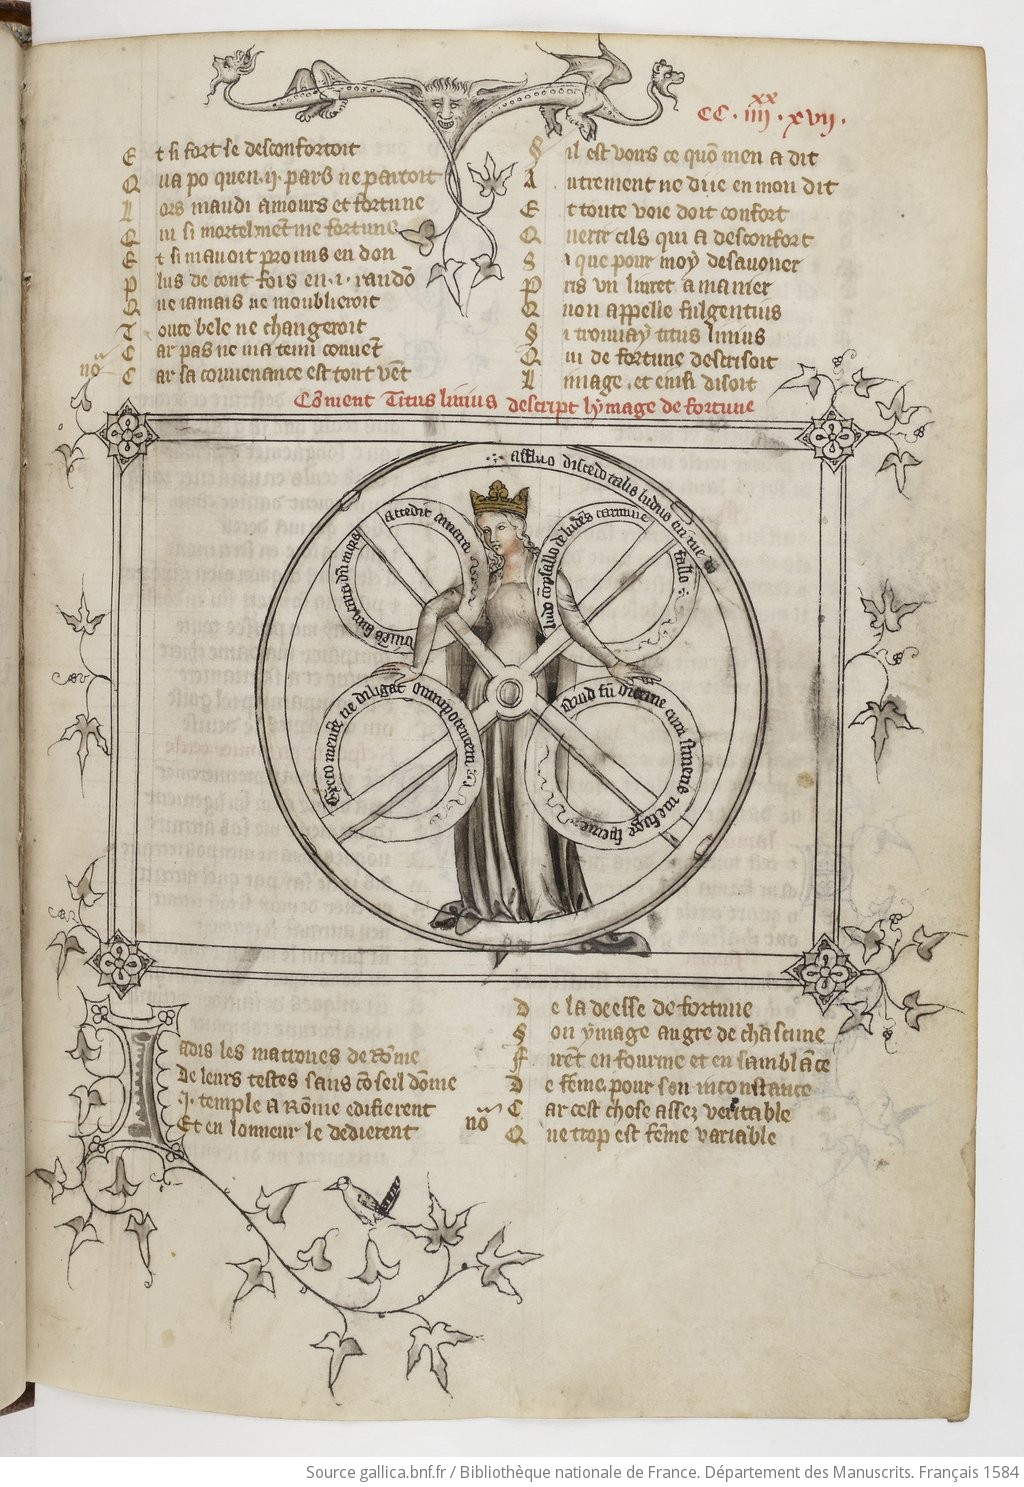 CC·iiii xx·xvii·
Et si fort se desconfortoit
Qua po quen·ii·pars ne partoit
Lors maudi amours et fortune
Qui si mortelmēt me fortune
Et si mavoit promis en don
Plus de cent fois en·i·randō
Que iamais ne moublieroit
Toute bele ne changeroit
Car pas ne ma tenu convēt
nō Car sa couvenance est tout vēt
Sil est voirs ce quō men a dit
Autrement ne di ie en mon dit
Et toute voie doit confort
Querir cils qui a desconfort
Si que pour moy desavouer
Pris un livret a manier
Quon appelle fulgentius
Si trouvay titus livius
Qui de fortune descrisoit
Limage, et ensi disoit
Cōment Titus livius descript lymage de fortune
affluo discedo talis ludus cui me
fallo
accedit amara
ludo
carmine
Exeo mente ne diligat omnipotentem
Iadis les matrones de Rōme
De leurs testes sans cōseil dōme
·I·temple a Rōme edifierent
Et en lonneur le dedierent
De la deesse de fortune
Son ymage au gre de chascune
Firēt en fourme et en samblāce
De fēme pour son inconstance
nō Car cest chose assez veritable
Que trop est fēme variable
Source gallica.bnf.fr / Bibliothèque nationale de France. Département des Manuscrits. Français 1584